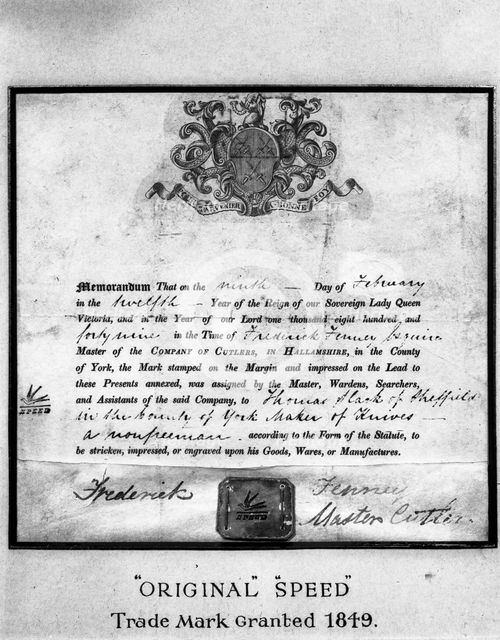 POUR Y PARVENIR A BONNE FOY
Memorandum That on the ninth — Day of February
in the twelfth - Year of the Reign of our Sovereign Lady Queen
Victoria, and in the Year of our Lord one thousand eight hundred, and
forty nine in the Time of Frederick Fenney Esquire
Master of the COMPANY OF CUTLERS, IN HALLAMSHIRE, in the County
of York, the Mark stamped on the Margin and impressed on the Lead to
these Presents annexed, was assigned by the Master, Wardens, Searchers,
and Assistants of the said Company, to Thomas Slack of Sheffield
SPEED
in the County of York Maker of Knives —
a nonfreeman . according to the Form of the Statute, to
be stricken, impressed, or engraved upon his Goods, Wares, or Manufactures.
Frederick Fenney
SPEED
Master Cutler.
"ORIGINAL" "SPEED"
Trade Mark Granted 1849.